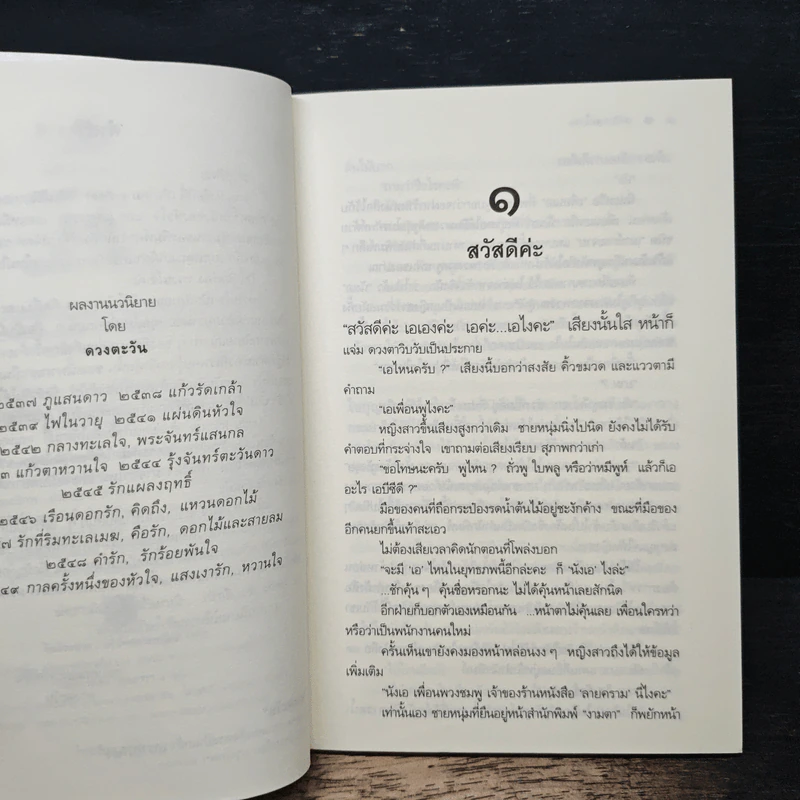 ผลงานนวนิยาย
โดย
ดวงตะวัน
๒๕๓๗ ภูแสนดาว ๒๕๓๘ แก้วรัดเกล้า
๒๕๓๙ ไฟในวายุ ๒๕๔๑ แผ่นดินหัวใจ
๒๕๔๒ กลางทะเลใจ, พระจันทร์แสนกล
๓ แก้วตาหวานใจ ๒๕๔๔ รุ้งจันทร์ตะวันดาว
๒๕๔๕ รักแผลงฤทธิ์
๒๕๔๖ เรือนดอกรัก, คิดถึง, แหวนดอกไม้
๗ รักที่ริมทะเลเมฆ, คือรัก, ดอกไม้และสายลม
๒๕๔๘ คำรัก, รักร้อยพันใจ
๔๙ กาลครั้งหนึ่งของหัวใจ, แสงเงารัก, หวานใจ
๑
สวัสดีค่ะ
“สวัสดีค่ะ เอเองค่ะ เอค่ะ...เอไงคะ” เสียงนั้นใส หน้าก็
แจ่ม ดวงตาวิบวับเป็นประกาย
“เอไหนครับ ?” เสียงนี้บอกว่าสงสัย คิ้วขมวด และแววตามี
คำถาม
“เอเพื่อนพูไงคะ”
หญิงสาวขึ้นเสียงสูงกว่าเดิม ชายหนุ่มนิ่งไปนิด ยังคงไม่ได้รับ
คำตอบที่กระจ่างใจ เขาถามต่อเสียงเรียบ สุภาพกว่าเก่า
“ขอโทษนะครับ พูไหน ? ถั่วพู ใบพลู หรือว่าหมีพูห์ แล้วก็เอ
อะไร เอบีซีดี ?”
มือของคนที่ถือกระป๋องรดน้ำต้นไม้อยู่ชะงักค้าง ขณะที่มือของ
อีกคนยกขึ้นเท้าสะเอว
ไม่ต้องเสียเวลาคิดนักตอนที่โพล่งบอก
“จะมี ‘เอ’ ไหนในยุทธภพนี้อีกล่ะคะ ก็ ‘นังเอ’ ไงล่ะ”
...ชักคุ้น ๆ คุ้นชื่อหรอกนะ ไม่ได้คุ้นหน้าเลยสักนิด
อีกฝ่ายก็บอกตัวเองเหมือนกัน ...หน้าตาไม่คุ้นเลย เพื่อนใครหว่า
หรือว่าเป็นพนักงานคนใหม่
ครั้นเห็นเขายังคงมองหน้าหล่อนงง ๆ หญิงสาวถึงได้ให้ข้อมูล
เพิ่มเติม
“นังเอ เพื่อนพวงชมพู เจ้าของร้านหนังสือ ‘ลายคราม’ นี่ไงคะ”
เท่านั้นเอง ชายหนุ่มที่ยืนอยู่หน้าสำนักพิมพ์ “งามตา” ก็พยักหน้า